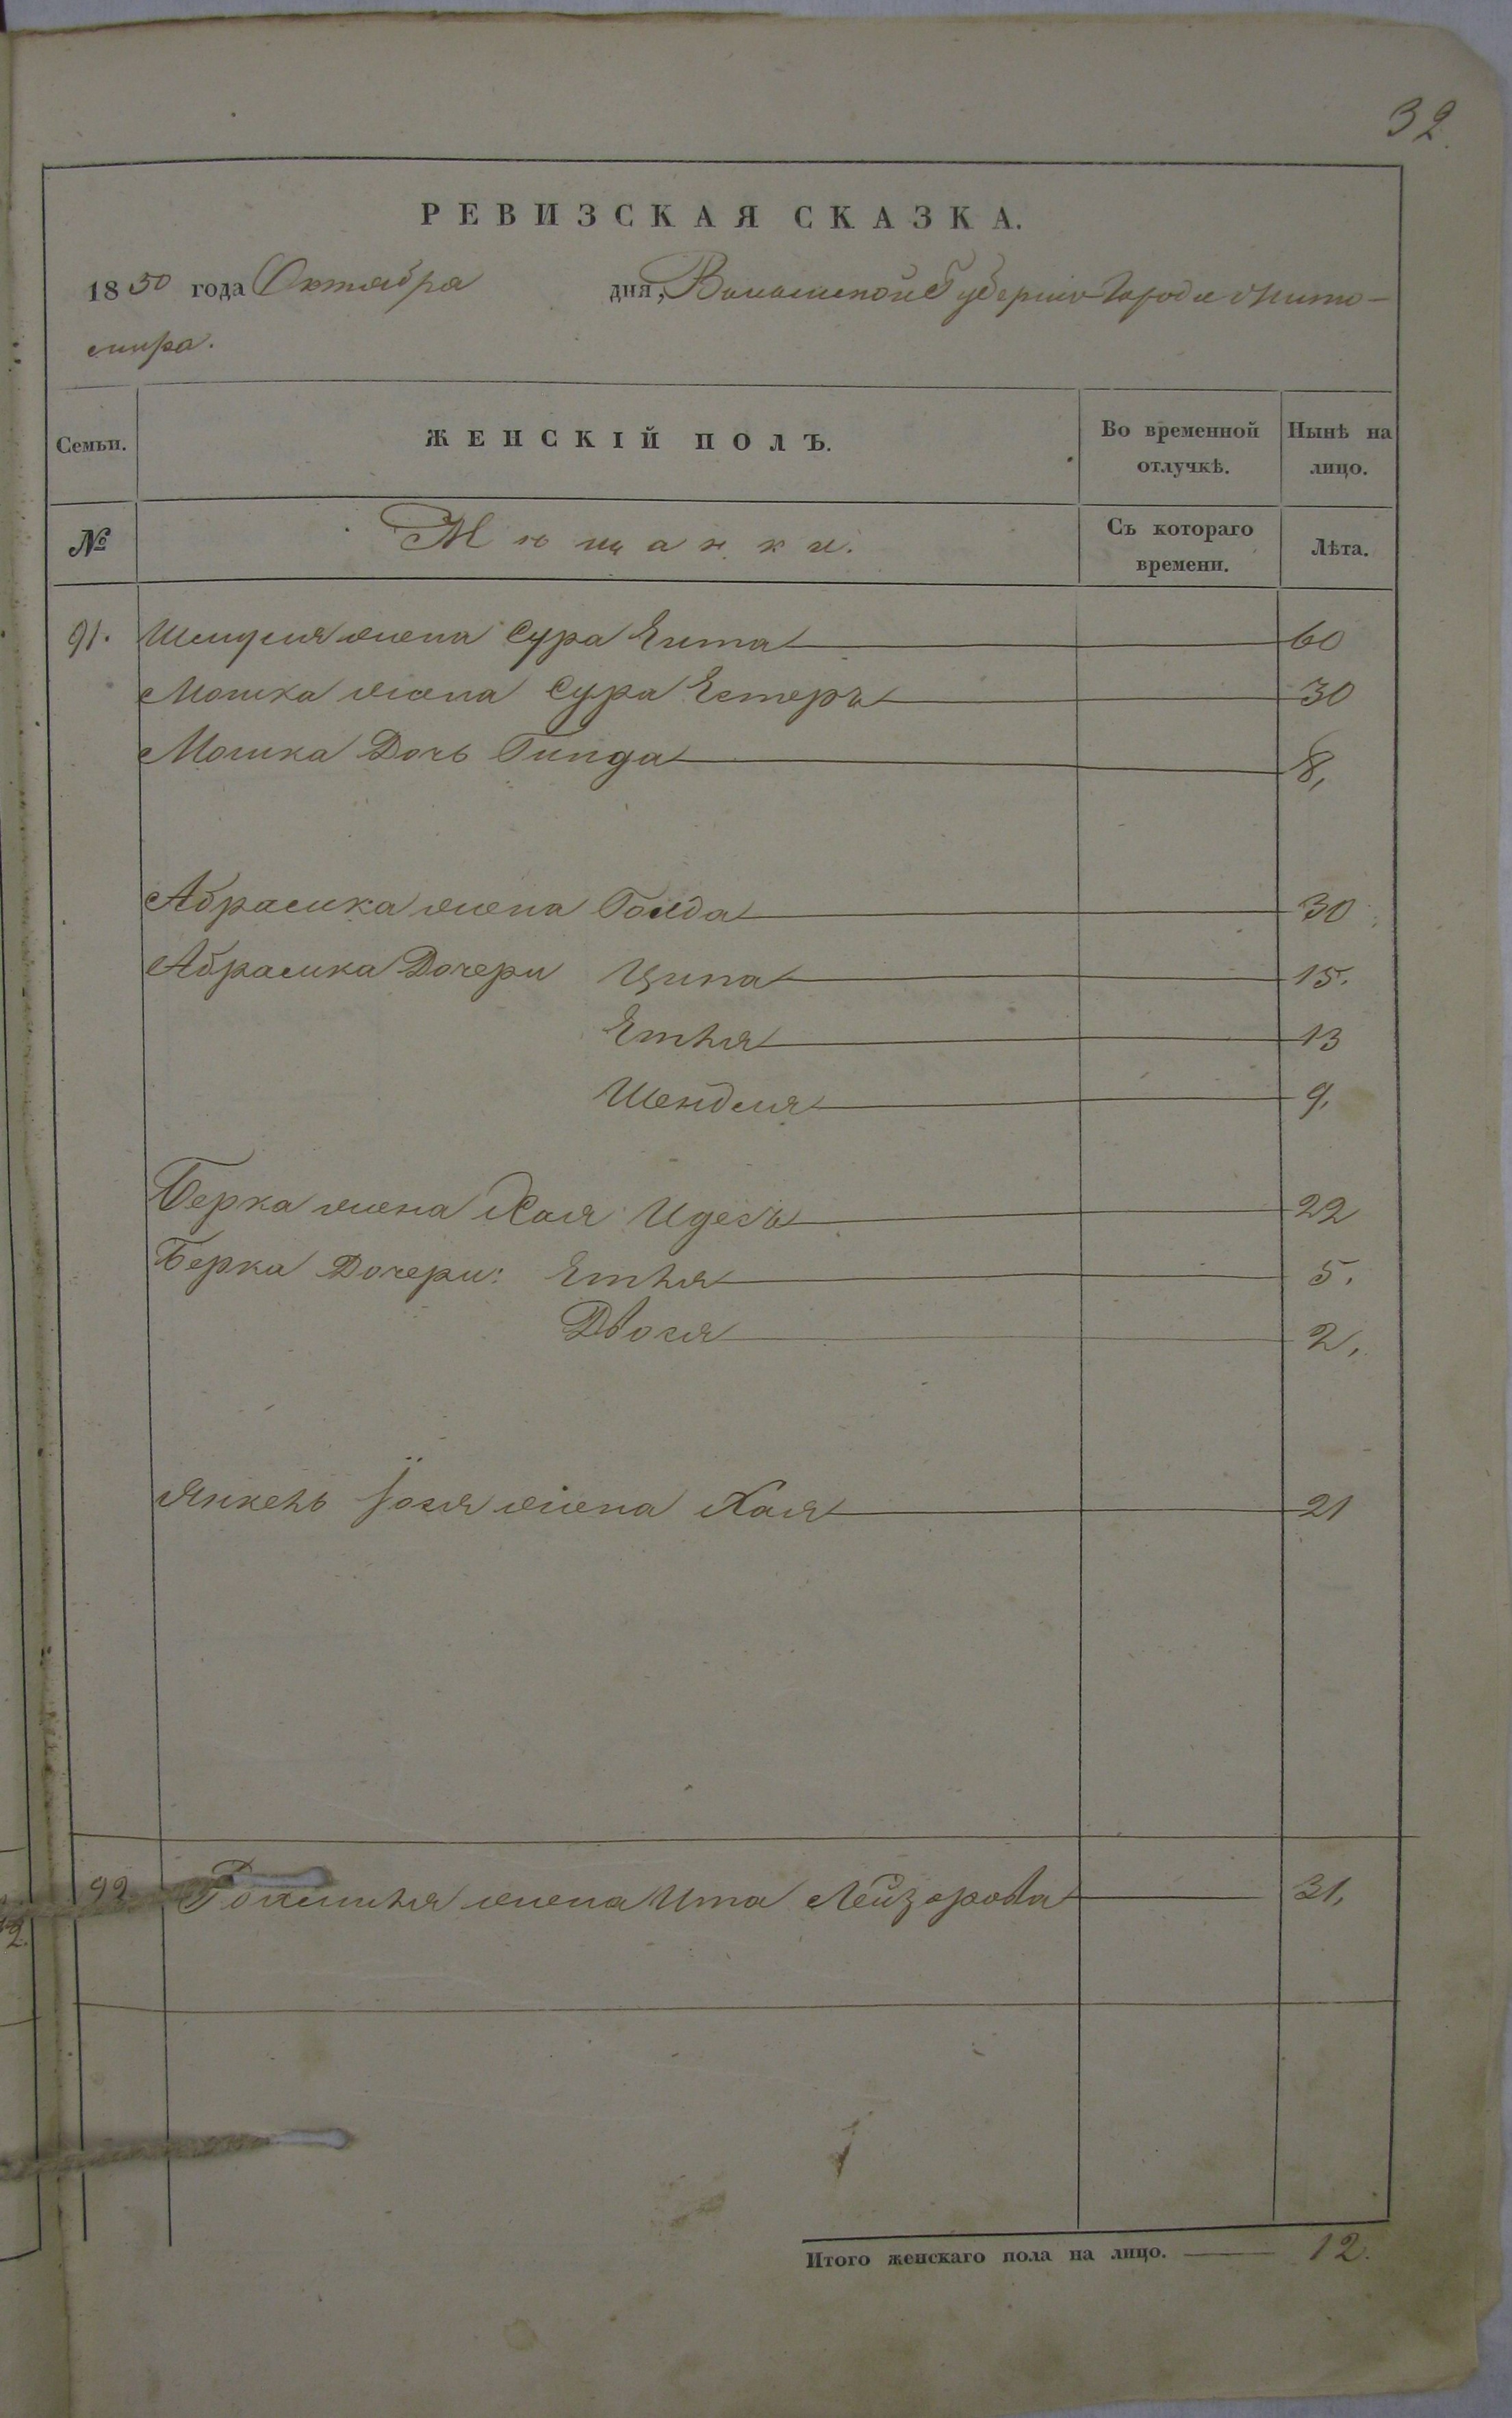 32.
РЕВИЗСКАЯ СКАЗКА.
1850 года Октября дня, Волынской Губернiи Города Жито-
мира.
Семьи. ЖЕНСКІЙ ПОЛЪ. Во временной отлучкѣ. Нынѣ на лицо.
№ Мѣщанки. Съ котораго времени. Лѣта.
91. жена Сура Ента 60
Мошка жена Сура Естеръ 30
Мошка Дочь Гинда 8,
Абрамка жена Голда 30
Абрамка Дочери Ципа 15.
Етля 13
Шендля 9,
Берка жена Хая Идесъ 22
Берка Дочери: Етля 5.
Двося 2,
Янкель Іося жена Хая 21
92 жена Ита Лейзерова 31,
Итого женскаго пола на лицо. 12.